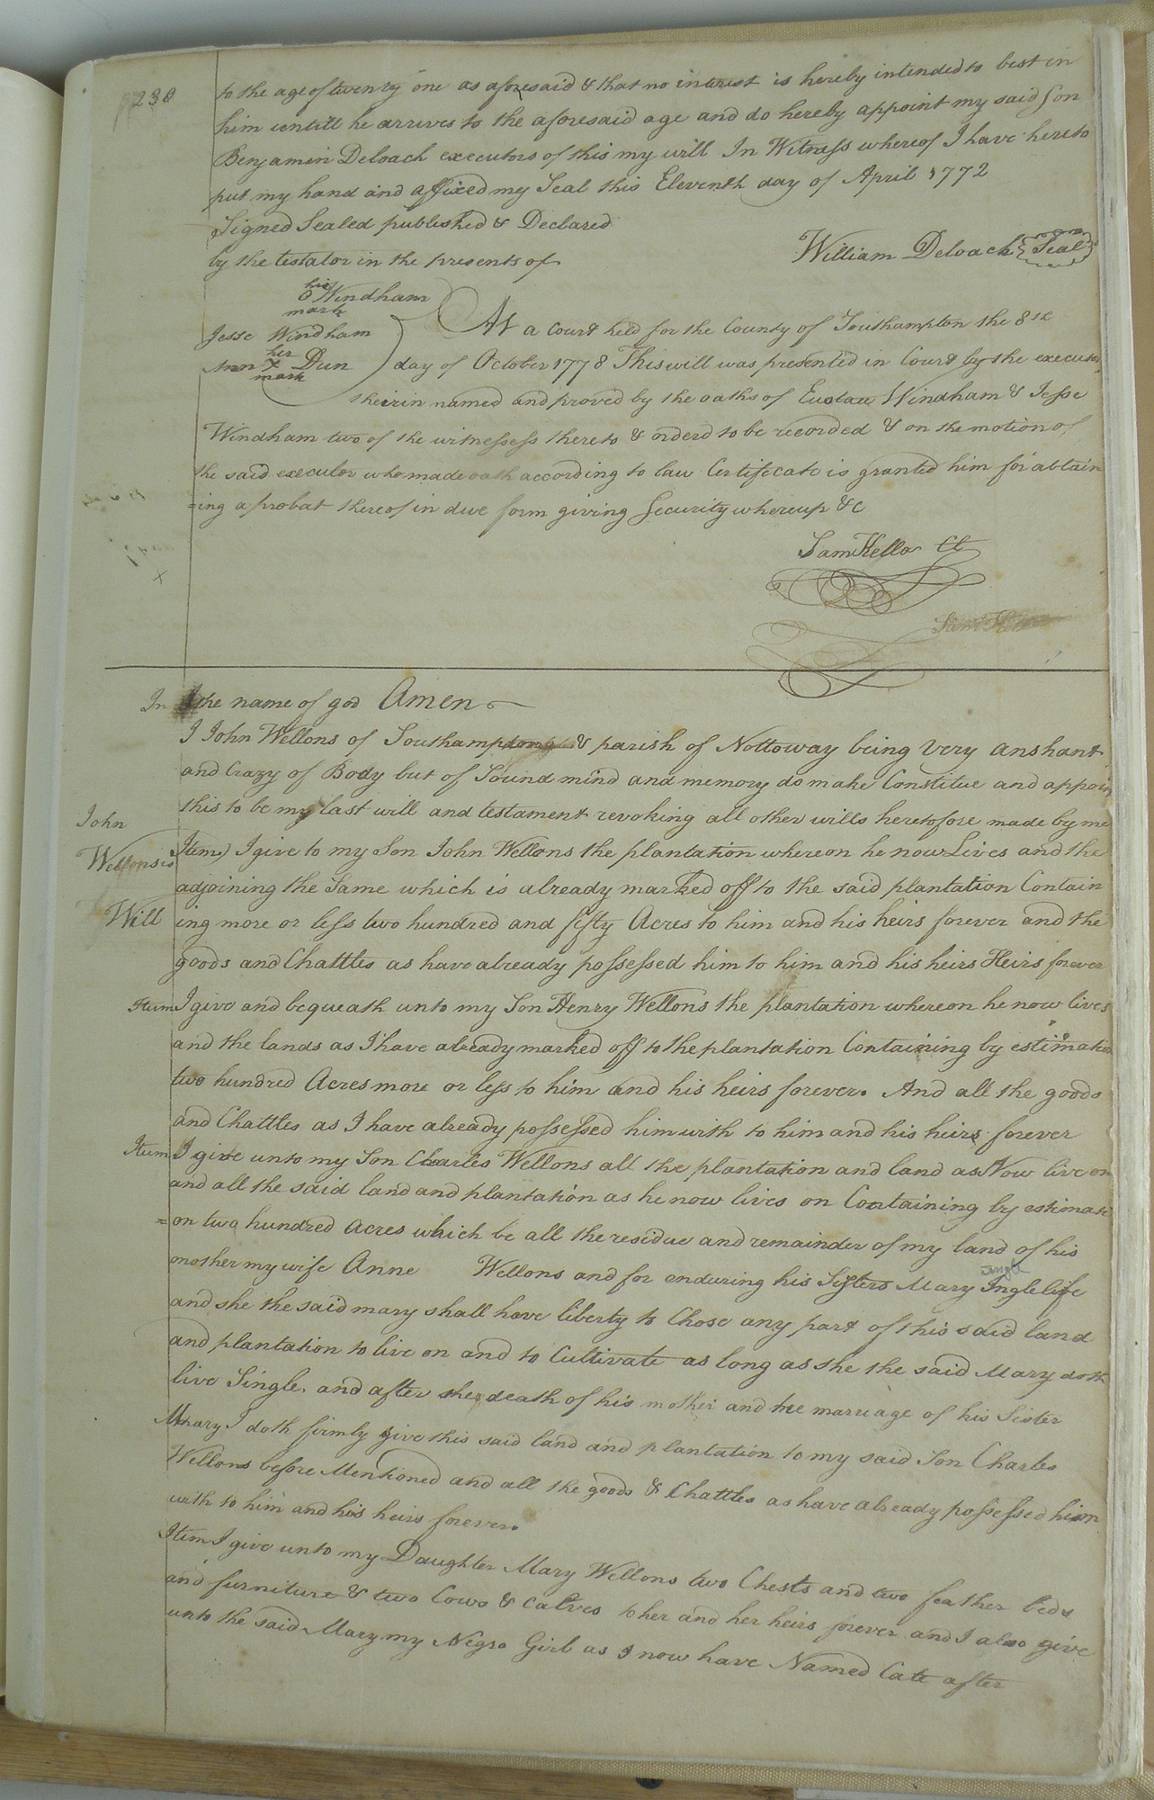 230
to the age of twenty one as aforesaid & that no interest is hereby intended to best in
him untill he arrives to the aforesaid age and do hereby appoint my said Son
Benjamin Deloach executors of this my will In Witness whereof I have hereto
put my hand and affixed my Seal this Eleventh day of April 1772
Signed Sealed published & Declared
by the testator in the presents of
William Deloach Seal
his
Windham
mark
Jesse Windham
her
Ann Dun
mark
At a Court held for the County of Southampton the 8th
day of October 1778 This will was presented in Court by the executor
therin named and proved by the oaths of Windham & Jesse
Windham two of the witnessess thereto & orderd to be recorded & on the motion of
the said executor who made oath according to law Certificate is granted him for obtain
=ing a probat thereof in due form giving Security whereup &c
Sam Kello Ct
In the name of god Amen
I John Wellons of Southampton & parish of Nottoway being very anshant
and Crazy of Body but of Sound mind and memory do make Constitue and appoin
this to be my last will and testament revoking all other wills heretofore made by me
John
Wellons's
Will
Item I give to my Son John Wellons the plantation whereon he now Lives and the
adjoining the Same which is already marked off to the said plantation Contain
ing more or less two hundred and fifty Acres to him and his heirs forever and the
goods and Chattles as have already possessed him to him and his heirs Heirs forever
Item I give and bequeath unto my Son Henry Wellons the plantation whereon he now lives
and the lands as I have already marked off to the plantation Containing by estimation
two hundred Acres more or less to him and his heirs forever. And all the goods
and Chattles as I have already possessed him with to him and his heirs forever
Item I give unto my Son Charles Wellons all the plantation and land as Now live on
and all the said land and plantation as he now lives on Containing by estimati
=on two hundred Acres which be all the residue and remainder of my land of his
mother my wife Anne Wellons and for enduring his Sisters Mary Ingle life
and she the said mary shall have liberty to Chose any part of this said land
and plantation to live on and to Cultivate as long as she the said Mary doth
live Single. and after she death of his mother and the marriage of his Sister
Mary I doth firmly give this said land and plantation to my said Son Charles
Wellons before Mentioned and all the goods & Chattles as have already possessed him
with to him and his heirs forever.
Item I give unto my Daughter Mary Wellons two Chests and two feather beds
and furniture & two Cows & Calves to her and her heirs forever and I also give
unto the said Mary my Negro Girl as I now have Named Cate after